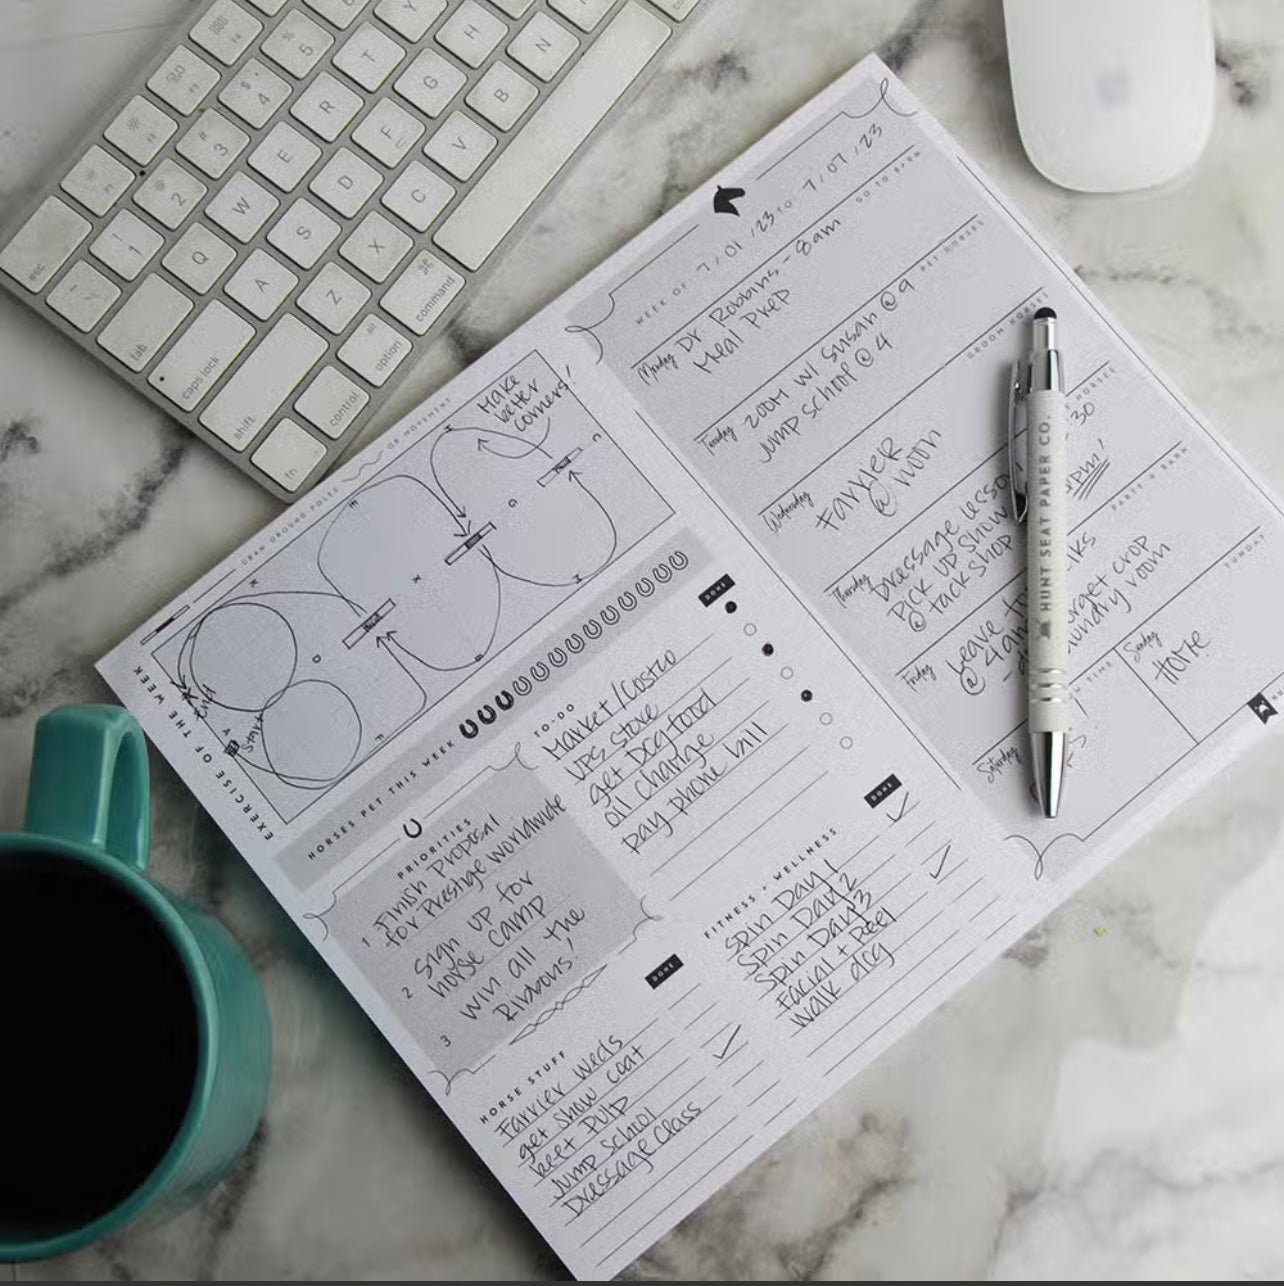 WEEK OF 7/01/23 TO 7/07/23
Monday
GO TO BARN
Dr. Robbins - 8am
Meal Prep
Tuesday
PET HORSES
ZOOM W/ SUSAN @ 9
Jump school @ 4
Wednesday
GROOM HORSES
FARRIER
@ noon
Thursday
Dressage
PICK UP SHOW
@ tack shop
30
Friday
PARTY @ BARN
Leave
@ 4am
crop
room
Saturday
TIME
Sunday
FUNDAY
HUNT SEAT PAPER CO.
EXERCISE OF THE WEEK
DRAW GROUND POLES
OR MOVEMENT
Make
better
corners!
Start
End
HORSES PET THIS WEEK
PRIORITIES
1 Finish Proposal
for Prestige Worldwide
2 Sign up for
horse camp
3 Win all the
Ribbons!
TO-DO
DONE
Market/Costco
UPS Store
get Dogfood
oil change
pay phone bill
FITNESS + WELLNESS
DONE
Spin Day 1
Spin Day 2
Spin Day 3
Facial + Peel
walk dog
HORSE STUFF
DONE
Farrier Weds
get show coat
beet pulp
Jump school
Dressage class
esc
tab
caps lock
shift
fn
control
alt
option
command
1
2
3
4
5
Q
W
E
R
T
Y
A
S
D
F
G
H
Z
X
C
V
B
N